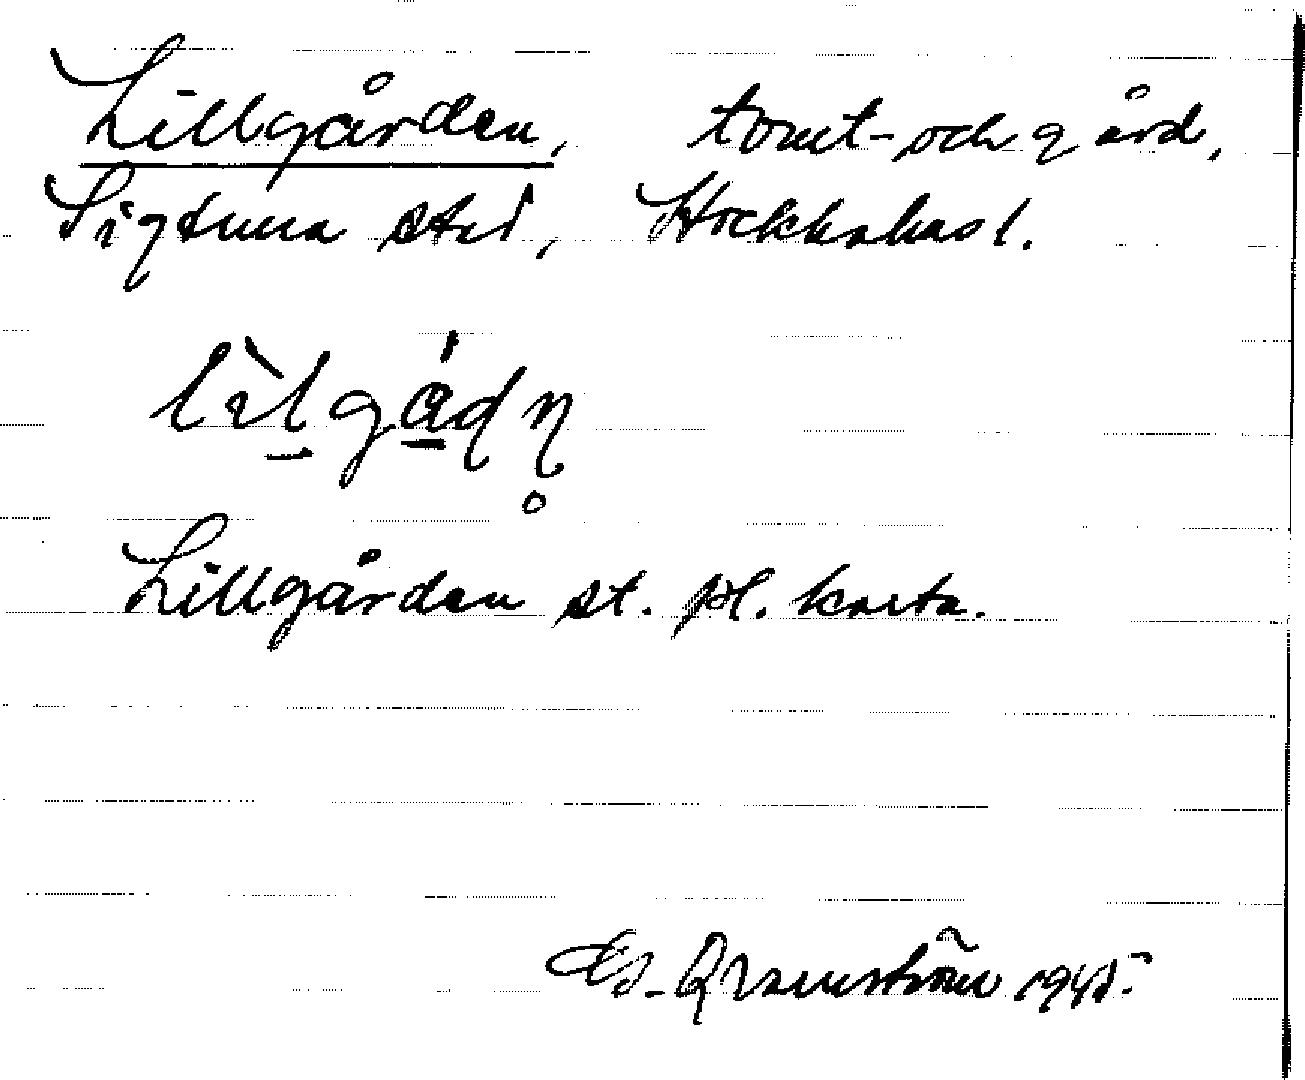 Lillgården, tomt- och gård,
Sigtuna stad, Stockholms l.
lìlgádn̥
Lillgården st. pl. karta.
Ed. Qvarnström 1945.